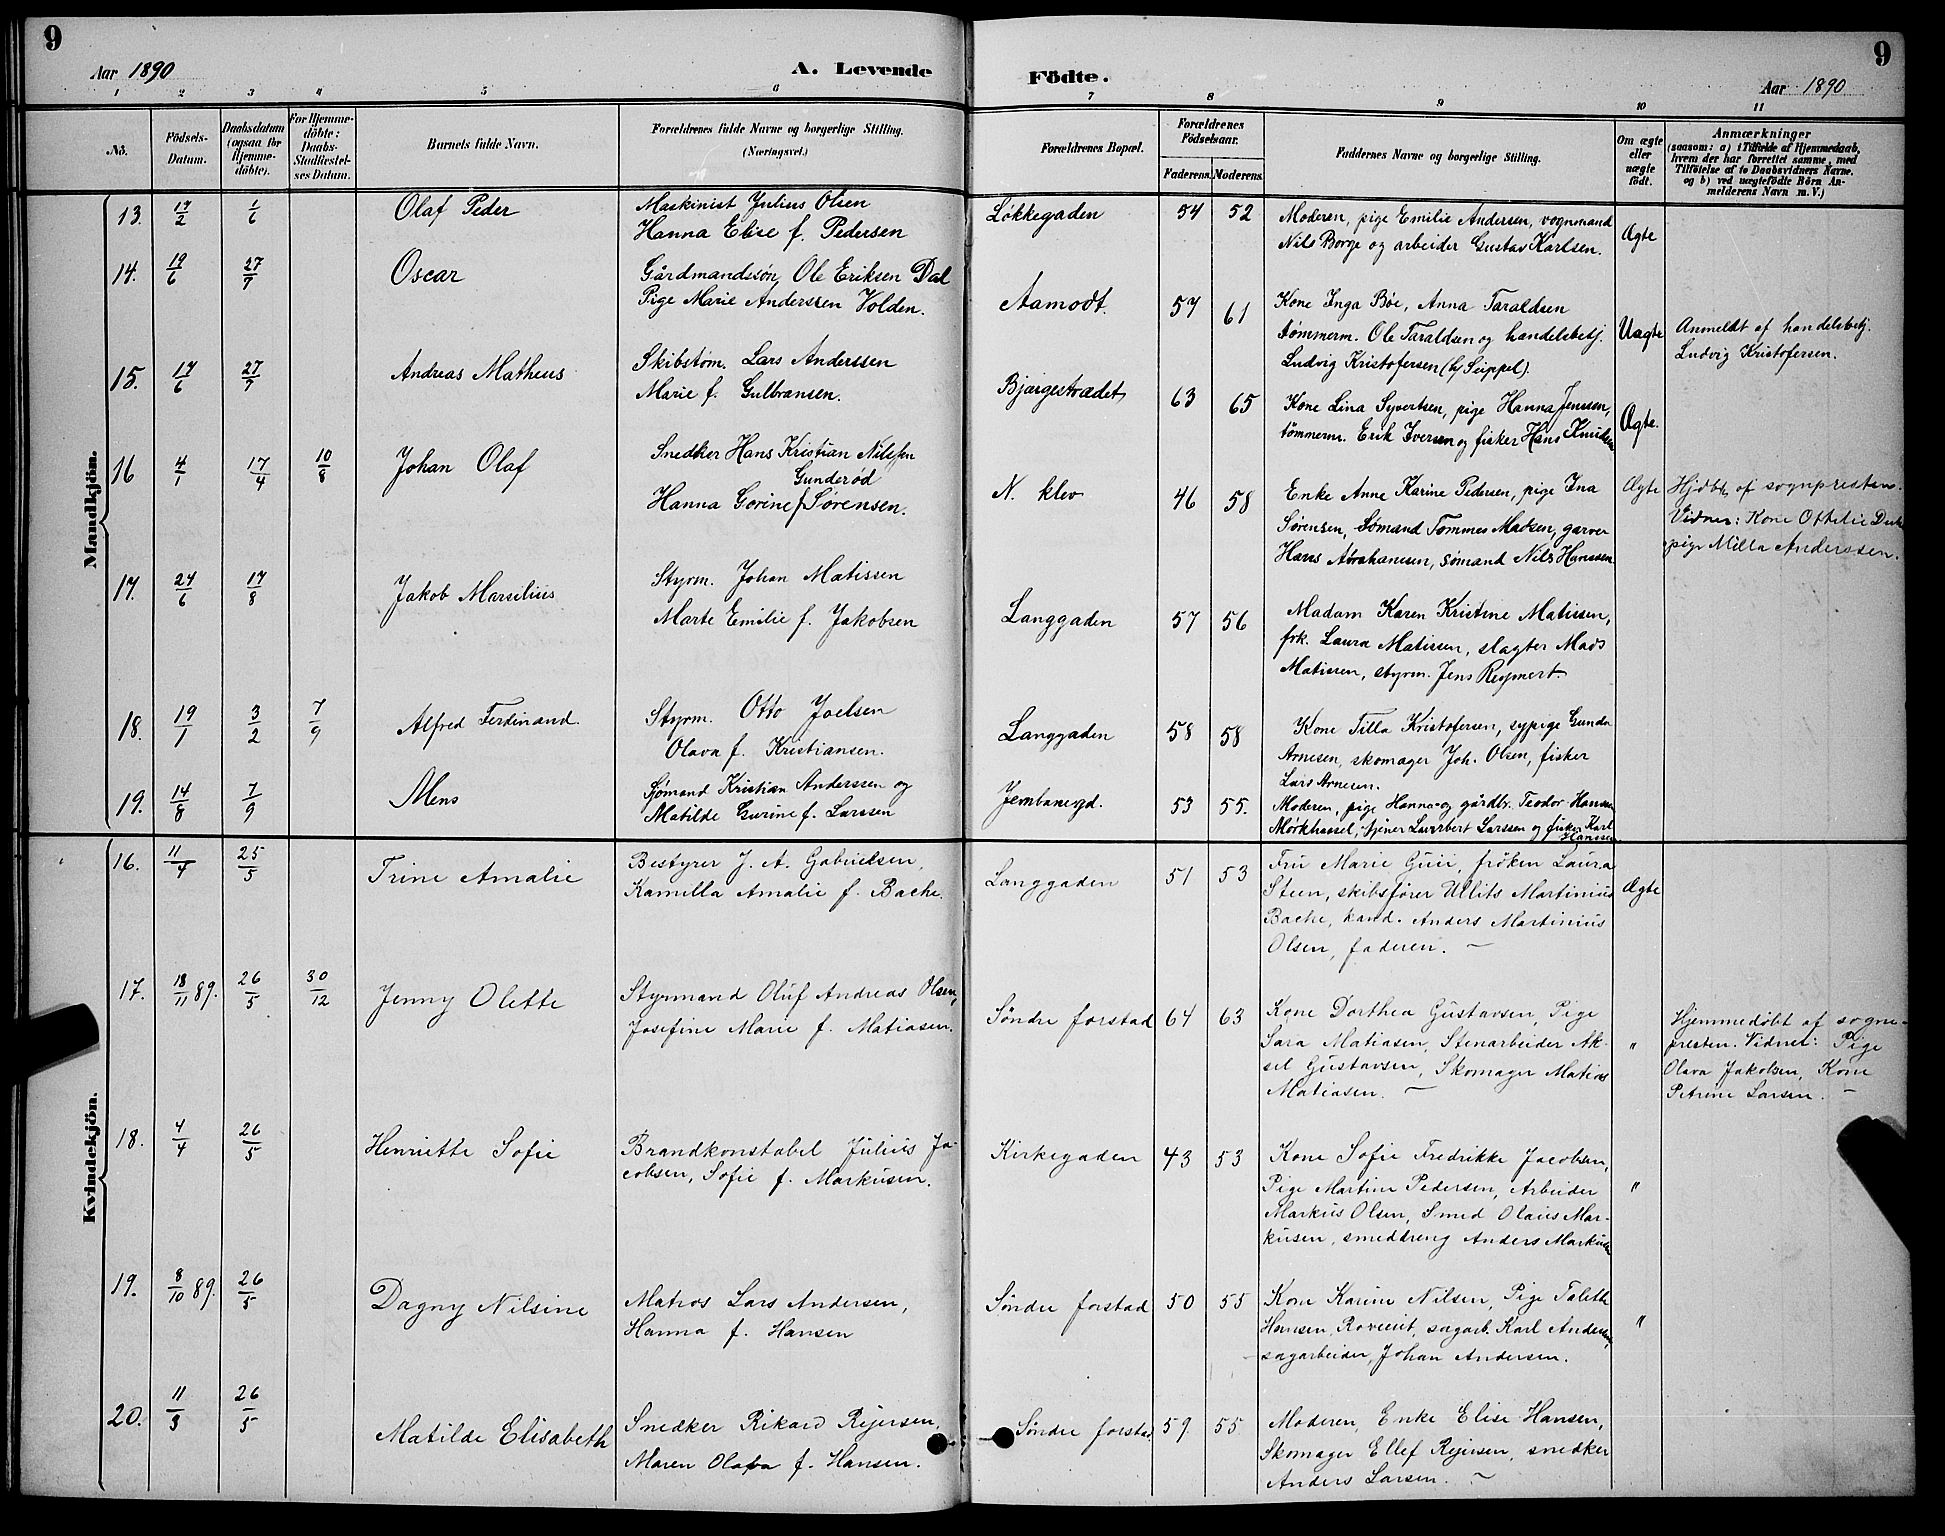 9
Aar 1890
A. Levende
Födte.
Aar 1890
9
1 2 3 4 5 6 7 8 9 10 11
No.
Födsels-
Datum.
Daabsdatum
(ogsaa for
Hjemme-
döbte).
For Hjemme-
döbte:
Daabs-
Stadfæstel-
ses Datum.
Barnets fulde Navn.
Forældrenes fulde Navne og borgerlige Stilling.
(Næringsvei.)
Forældrenes Bopæl.
Forældrenes
Födselsaar.
Faderens. Moderens.
Faddernes Navne og borgerlige Stilling.
Om ægte
eller
uægte
födt.
Anmærkninger
(saasom: a) i Tilfælde af Hjemmedaab,
hvem der har forrettet samme, med
Tilföielse af to Daabsvidners Navne.
og b) ved uægtefödte Börn An-
melderens Navn m. V.)
Mandkjön.
13. 17/2 1/6 Olaf Peder
Maskinist Julius Olsen
Hanna Elise f. Pedersen
Løkkegaden 54 52
Moderen, pige Emilie Andersen, vognmand
Nils Borge og arbeider Gustav Karlsen.
Ægte
14. 19/6 27/7 Oscar
Gårdmandssøn Ole Eriksen Dal
Pige Marie Anderssen Volden.
Aamodt. 57 61
Kone Inga Bøe, Anna Taraldsen
tømmerm. Ole Taraldsen og handelsbetj.
Ludvig Kristofersen (by Seippel).
Uægte
Anmeldt af handelsbetj.
Ludvig Kristofersen.
15. 17/6 27/7 Andreas Matheus
Skibstøm. Lars Anderssen
Marie f. Gulbransen.
Bjærgestrædet 63 65
Kone Lina Syvertsen, pige Hanna Jenssen,
tømmerm. Erik Iversen og fisker Hans Knudsen
Ægte.
16 4/1 17/4 10/8 Johan Olaf
Snedker Hans Kristian Nilssen
Gunderød
Hanna Gorine f Sørensen.
N. klev 46 58
Enke Anne Karine Pedersen, pige Ina
Sørensen, Sømand Tommes Madsen, garver
Hans Abrahamsen, sømand Nils Hanssen
Ægte
Hjdbt, af sognpresten.
Vidner: Kone Ottilie
pige Milla Anderssen.
17. 24/6 17/8 Jakob Marsilius
Styrm. Johan Matissen
Marte Emilie f. Jakobsen
Langgaden 57 56
Madam Karen Kristine Matissen,
frk. Laura Matissen, slagter Mads
Matissen, styrm. Jens Reymert.
18. 19/1 3/2 7/9 Alfred Ferdinand.
Styrm. Otto Joelsen
Olava f. Kristiansen.
Langgaden 58 58
Kone Tilla Kristofersen, sypige Gunda
Arnesen, skomager Joh. Olsen, fisker
Lars Arnesen.
19. 14/8 7/9 Mens
Sjømand Kristian Anderssen og
Matilde Gurine f. Larssen
Jernbanegd. 53 55.
Moderen, pige Hanna og gårdbr. Teodor Hansen
Mørkhassel, tjener Laverbert Larssen og fisker Karl
Hanssen
Kvindekjön.
16. 11/4 25/5 Trine Amalie
Bestyrer J. A. Gabrielsen,
Kamilla Amalie f. Bache.
Langgaden 51 53
Fru Marie Guii, frøken Laura
Steen, skibsfører Ullits Martinius
Bache, kand. Anders Martinius
Olsen, faderen. —
Ægte
17. 18/11 89. 26/5 30/12 Jenny Olette
Styrmand Oluf Andreas Olsen,
Josefine Marie f. Matiasen.
Søndre forstad 64 63
Kone Dorthea Gustavsen, Pige
Sara Matiasen, Stenarbeider Ak-
sel Gustavsen, Skomager Matias
Matiasen. —
"
Hjemmedøbt af sogne-
presten. Vidner: Pige
Olava Jakobsen, Kone
Petrine Larsen. —
18. 4/4 26/5 Henriette Sofie
Brandkonstabel Julius Ja-
cobsen, Sofie f. Markusen.
Kirkegaden 43 53
Kone Sofie Fredrikke Jacobsen,
Pige Martine Pedersen, Arbeider
Markus Olsen, Smed Olaus Mar-
kusen, smeddreng Anders Markusen
"
19. 8/10 89. 26/5 Dagny Nilsine
Matros Lars Andersen,
Hanna f. Hansen
Søndre forstad 50 55
Kone Karine Nilsen, Pige Taleth
Hansen, Roveent, sagarb. Karl Andersen,
sagarbeider, Johan Andersen.
"
20. 11/3 26/5 Matilde Elisabeth
Snedker Rikard Rejersen,
Maren Olava f. Hansen.
Søndre forstad. 59. 55
Moderen, Enke Elise Hansen,
Skomager Ellef Rejersen, snedker
Anders Larsen. —